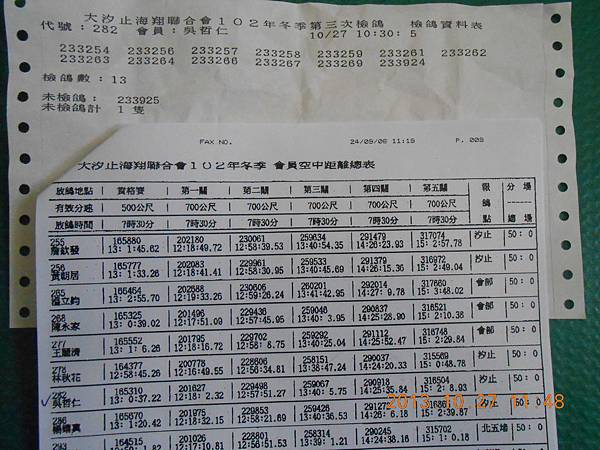 大汐止海翔聯合會102年冬季第三次檢鴿 檢鴿資料表
代號：282 會員：吳哲仁 10/27 10:30: 5
233254 233256 233257 233258 233259 233261 233262
233263 233264 233266 233267 233269 233924
檢鴿數：13
未檢鴿： 233925
未檢鴿計 1 隻
FAX NO. 24/09/06 11:18 P. 008
大汐止海翔聯合會102年冬季 會員空中距離總表
放鴿地點 資格賽 第一關 第二關 第三關 第四關 第五關 報鴿點 分 場
有效分速 500公尺 700公尺 700公尺 700公尺 700公尺 700公尺
放鴿時間 7時30分 7時30分 7時30分 7時30分 7時30分 7時30分 總 場
255 165880 202180 230061 259634 291479 317074 汐止 50: 0
詹欽發 13: 1:45.62 12:18:49.72 12:58:39.53 13:40:54.35 14:26:23.93 15: 2:57.78
256 165777 202083 229961 259533 291379 316972 汐止 50: 0
黃朝居 13: 1:33.26 12:18:41.41 12:58:30.95 13:40:45.69 14:26:15.36 15: 2:49.04
265 166464 202688 230606 260201 292014 317660 會部 50: 0
溫立鈞 13: 2:55.70 12:19:33.26 12:59:26.24 13:41:42.95 14:27: 9.78 15: 3:48.02
268 165325 201496 229436 259046 290837 316521 會部 50: 0
陳永家 13: 0:39.02 12:17:51.09 12:57:45.95 13:40: 3.95 14:25:28.90 15: 2:10.38
277 165552 201795 229702 259292 291112 316748 會部 50: 0
13: 1: 6.26 12:18:16.72 12:58: 8.75 13:40:25.04 14:25:52.47 15: 2:29.84
278 164377 200778 228606 258151 290037 315569 汐止 50: 0
林秋花 12:58:45.26 12:16:49.55 12:56:34.81 13:38:47.24 14:24:20.33 15: 0:48.78
282 165310 201627 229498 259067 290918 316504 汐止 50: 0
吳哲仁 13: 0:37.22 12:18: 2.32 12:57:51.27 13:40: 5.75 14:25:35.84 15: 2: 8.93
286 165670 201975 229853 259426 汐止 50: 0
13: 1:20.42 12:18:32.15 12:58:21.69 13:40:36.53 14:26: 6.18 15: 2:39.87
293 164515 201026 228801 258314 290245 315702 北五堵 50: 0
12:17:10.81 12:56:51.53 13:39: 1.21 14:24:38.16 15: 1: 0.18
2013.10.27 11:48